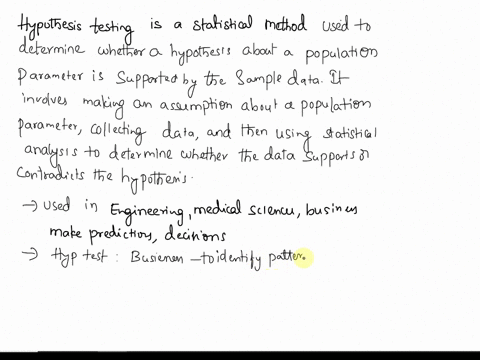 Hypothesis testing is a statistical method used to
determine whether a hypothesis about a population
Parameter is Supported by the Sample data. It
involves making an assumption about a population
parameter, collecting data, and then using statistical
analysis to determine whether the data supports or
Contradicts the hypothesis.
→ Used in Engineering, medical sciences, business
make predictions, decisions
→ Hyp test : Busienss – to identify patter